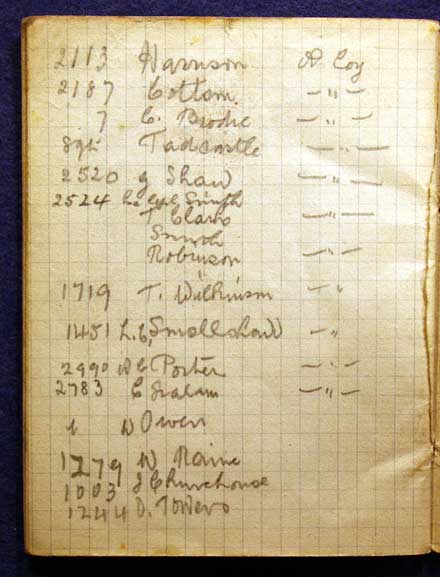 2113 Harrison D Coy
2187 Cottam. — " —
7 C. Brodie — " —
895 Tadcastle — " —
2520 g Shaw — " —
2524 Smith
T Clark — " —
Smith
Robinson — " —
1719 T. Wilkinson — "
1451 L.C. Smallshaw — "
2990 W C Porter — " —
2783 C Graham — " —
1 W Owen
1279 W Raine
1003 J Churchouse
1244 D. Towers